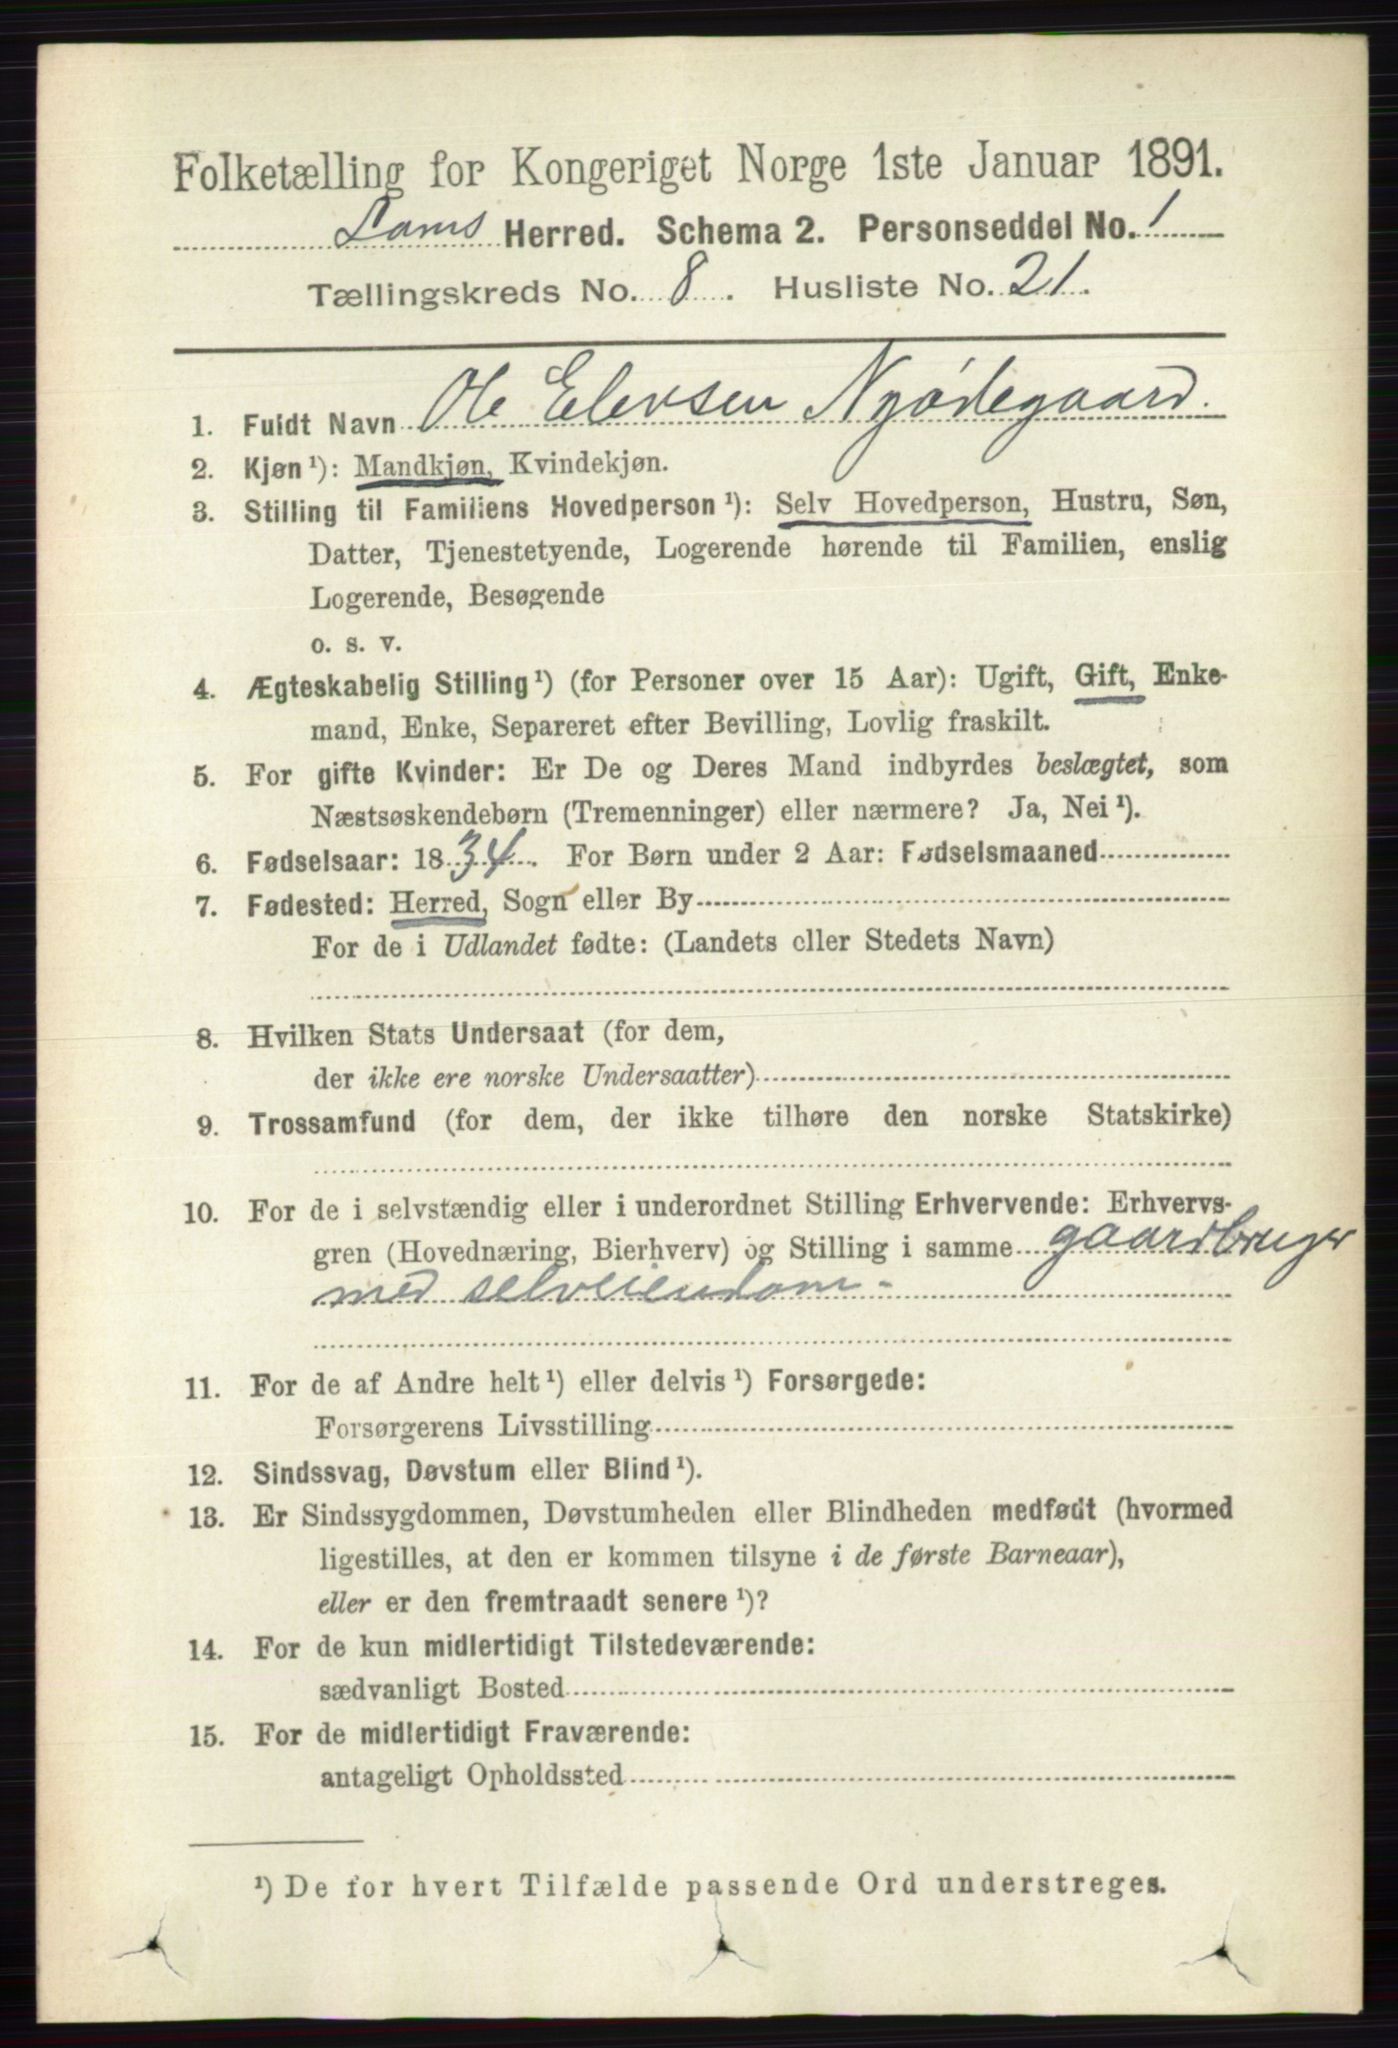 Folketælling for Kongeriget Norge 1ste Januar 1891.
Loms Herred. Schema 2. Personseddel No. 1
Tællingskreds No. 8. Husliste No. 21.
1. Fuldt Navn Ole Elevsen Nyødegaard.
2. Kjøn ¹): Mandkjøn, Kvindekjøn.
3. Stilling til Familiens Hovedperson ¹): Selv Hovedperson, Hustru, Søn,
Datter, Tjenestetyende, Logerende hørende til Familien, enslig
Logerende, Besøgende
o. s. v.
4. Ægteskabelig Stilling ¹) (for Personer over 15 Aar): Ugift, Gift, Enke-
mand, Enke, Separeret efter Bevilling, Lovlig fraskilt.
5. For gifte Kvinder: Er De og Deres Mand indbyrdes beslægtet, som
Næstsøskendebørn (Tremenninger) eller nærmere? Ja, Nei ¹).
6. Fødselsaar: 1834. For Børn under 2 Aar: Fødselsmaaned
7. Fødested: Herred, Sogn eller By
For de i Udlandet fødte: (Landets eller Stedets Navn)
8. Hvilken Stats Undersaat (for dem,
der ikke ere norske Undersaatter)
9. Trossamfund (for dem, der ikke tilhøre den norske Statskirke)
10. For de i selvstændig eller i underordnet Stilling Erhvervende: Erhvervs-
gren (Hovednæring, Bierhverv) og Stilling i samme gaardbruger
med selveiendom.
11. For de af Andre helt ¹) eller delvis ¹) Forsørgede:
Forsørgerens Livsstilling
12. Sindssvag, Døvstum eller Blind ¹).
13. Er Sindssygdommen, Døvstumheden eller Blindheden medfødt (hvormed
ligestilles, at den er kommen tilsyne i de første Barneaar),
eller er den fremtraadt senere ¹)?
14. For de kun midlertidigt Tilstedeværende:
sædvanligt Bosted
15. For de midlertidigt Fraværende:
antageligt Opholdssted
¹) De for hvert Tilfælde passende Ord understreges.